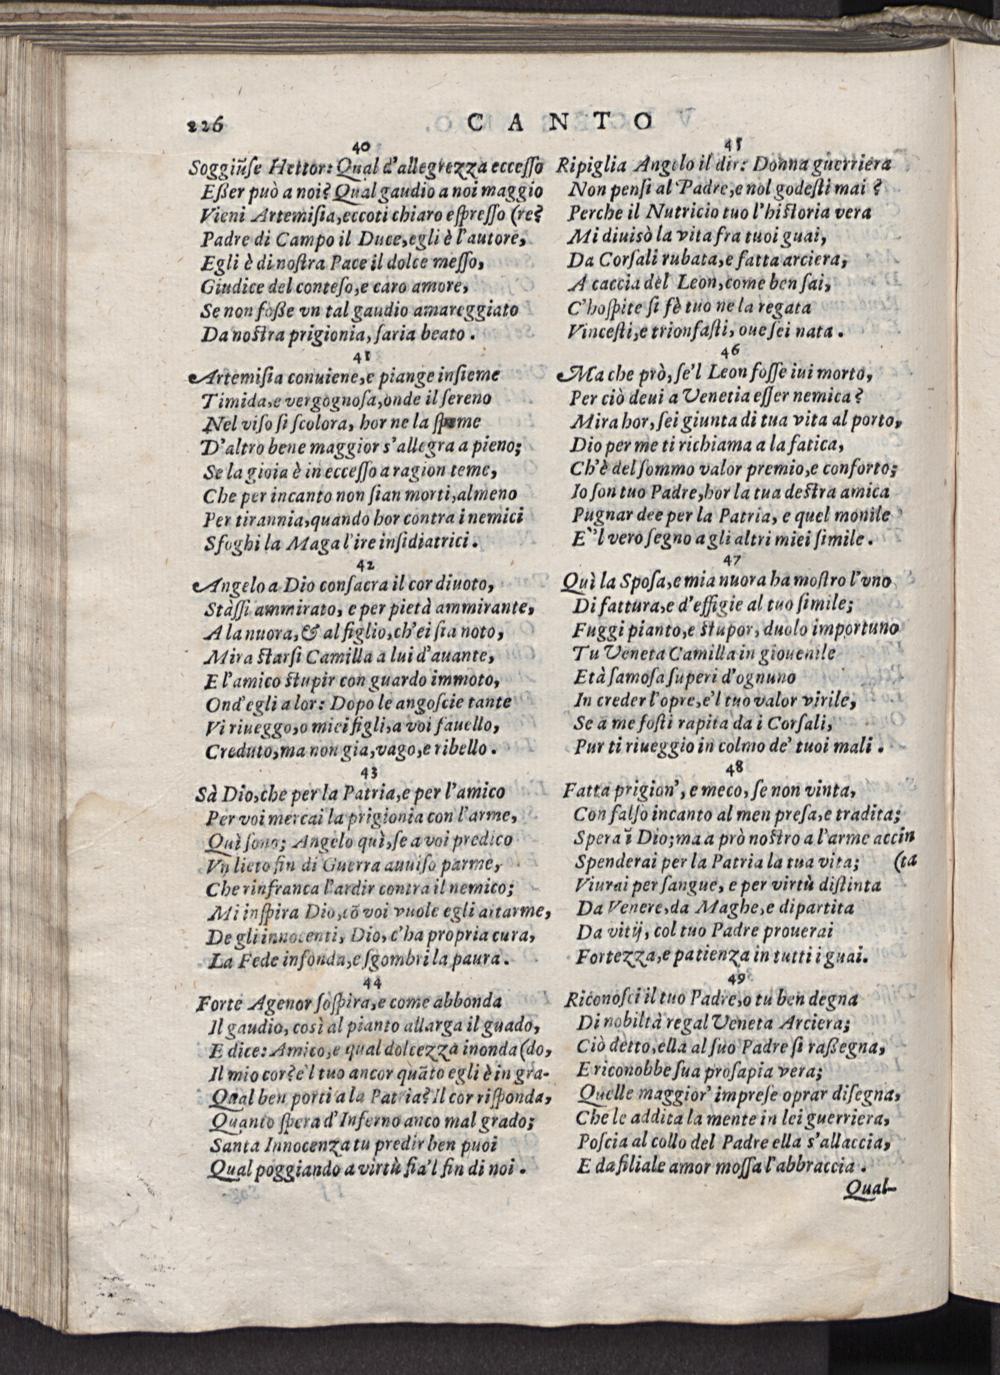 226
CANTO
40
Soggiũse Hettor: Qual d'allegrezza eccesso
Esser può a noi? Qual gaudio a noi maggio
Vieni Artemisia, eccoti chiaro espresso (re?
Padre di Campo il Duce, egli è l'autore,
Egli è di nostra Pace il dolce messo,
Giudice del conteso, e caro amore,
Se non fosse vn tal gaudio amareggiato
Da nostra prigionia, saria beato.
41
Artemisia conuiene, e piange insieme
Timida, e vergognosa, onde il sereno
Nel viso si scolora, hor ne la speme
D'altro bene maggior s'allegra a pieno;
Se la gioia è in eccesso a ragion teme,
Che per incanto non sian morti, almeno
Per tirannia, quando hor contra i nemici
Sfoghi la Maga l'ire insidiatrici.
42
Angelo a Dio consacra il cor diuoto,
Stassi ammirato, e per pietà ammirante,
A la nuora, & al figlio, ch'ei sia noto,
Mira starsi Camilla a lui d'auante,
E l'amico stupir con guardo immoto,
Ond'egli a lor: Dopo le angoscie tante
Vi riueggo, o miei figli, a voi fauello,
Creduto, ma non gia, vago, e ribello.
43
Sà Dio, che per la Patria, e per l'amico
Per voi mercai la prigionia con l'arme,
Quì sono; Angelo quì, se a voi predico
Vn lieto fin di Guerra auuiso parme,
Che rinfranca l'ardir contra il nemico;
Mi inspira Dio, cõ voi vuole egli aitarme,
De gli innocenti, Dio, c'ha propria cura,
La Fede infonda, e sgombri la paura.
44
Forte Agenor sospira, e come abbonda
Il gaudio, così al pianto allarga il guado,
E dice: Amico, e qual dolcezza inonda (do,
Il mio cor? e'l tuo ancor quãto egli è in gra-
Qual ben porti a la Patria? il cor risponda,
Quanto spera d'Inferno anco mal grado;
Santa Innocenza tu predir ben puoi
Qual poggiando a virtù fia'l fin di noi.
45
Ripiglia Angelo il dir: Donna guerriera
Non pensi al Padre, e nol godesti mai?
Perche il Nutricio tuo l'historia vera
Mi diuisò la vita fra tuoi guai,
Da Corsali rubata, e fatta arciera,
A caccia del Leon, come ben sai,
C'hospite si fè tuo ne la regata
Vincesti, e trionfasti, oue sei nata.
46
Ma che prò, se'l Leon fosse iui morto,
Per ciò deui a Venetia esser nemica?
Mira hor, sei giunta di tua vita al porto,
Dio per me ti richiama a la fatica,
Ch'è del sommo valor premio, e conforto;
Io son tuo Padre, hor la tua destra amica
Pugnar dee per la Patria, e quel monile
E'l vero segno a gli altri miei simile.
47
Quì la Sposa, e mia nuora ha mostro l'vno
Di fattura, e d'effigie al tuo simile;
Fuggi pianto, e stupor, duolo importuno
Tu Veneta Camilla in giouenile
Età famosa superi d'ognuno
In creder l'opre, e'l tuo valor virile,
Se a me fosti rapita da i Corsali,
Pur ti riueggio in colmo de' tuoi mali.
48
Fatta prigion', e meco, se non vinta,
Con falso incanto al men presa, e tradita;
Spera ĩ Dio; ma a prò nostro a l'arme accin
Spenderai per la Patria la tua vita; (ta
Viurai per sangue, e per virtù distinta
Da Venere, da Maghe, e dipartita
Da vitij, col tuo Padre prouerai
Fortezza, e patienza in tutti i guai.
49
Riconosci il tuo Padre, o tu ben degna
Di nobiltà regal Veneta Arciera;
Ciò detto, ella al suo Padre si rassegna,
E riconobbe sua prosapia vera;
Quelle maggior' imprese oprar disegna,
Che le addita la mente in lei guerriera,
Poscia al collo del Padre ella s'allaccia,
E da filiale amor mossa l'abbraccia.
Qual-